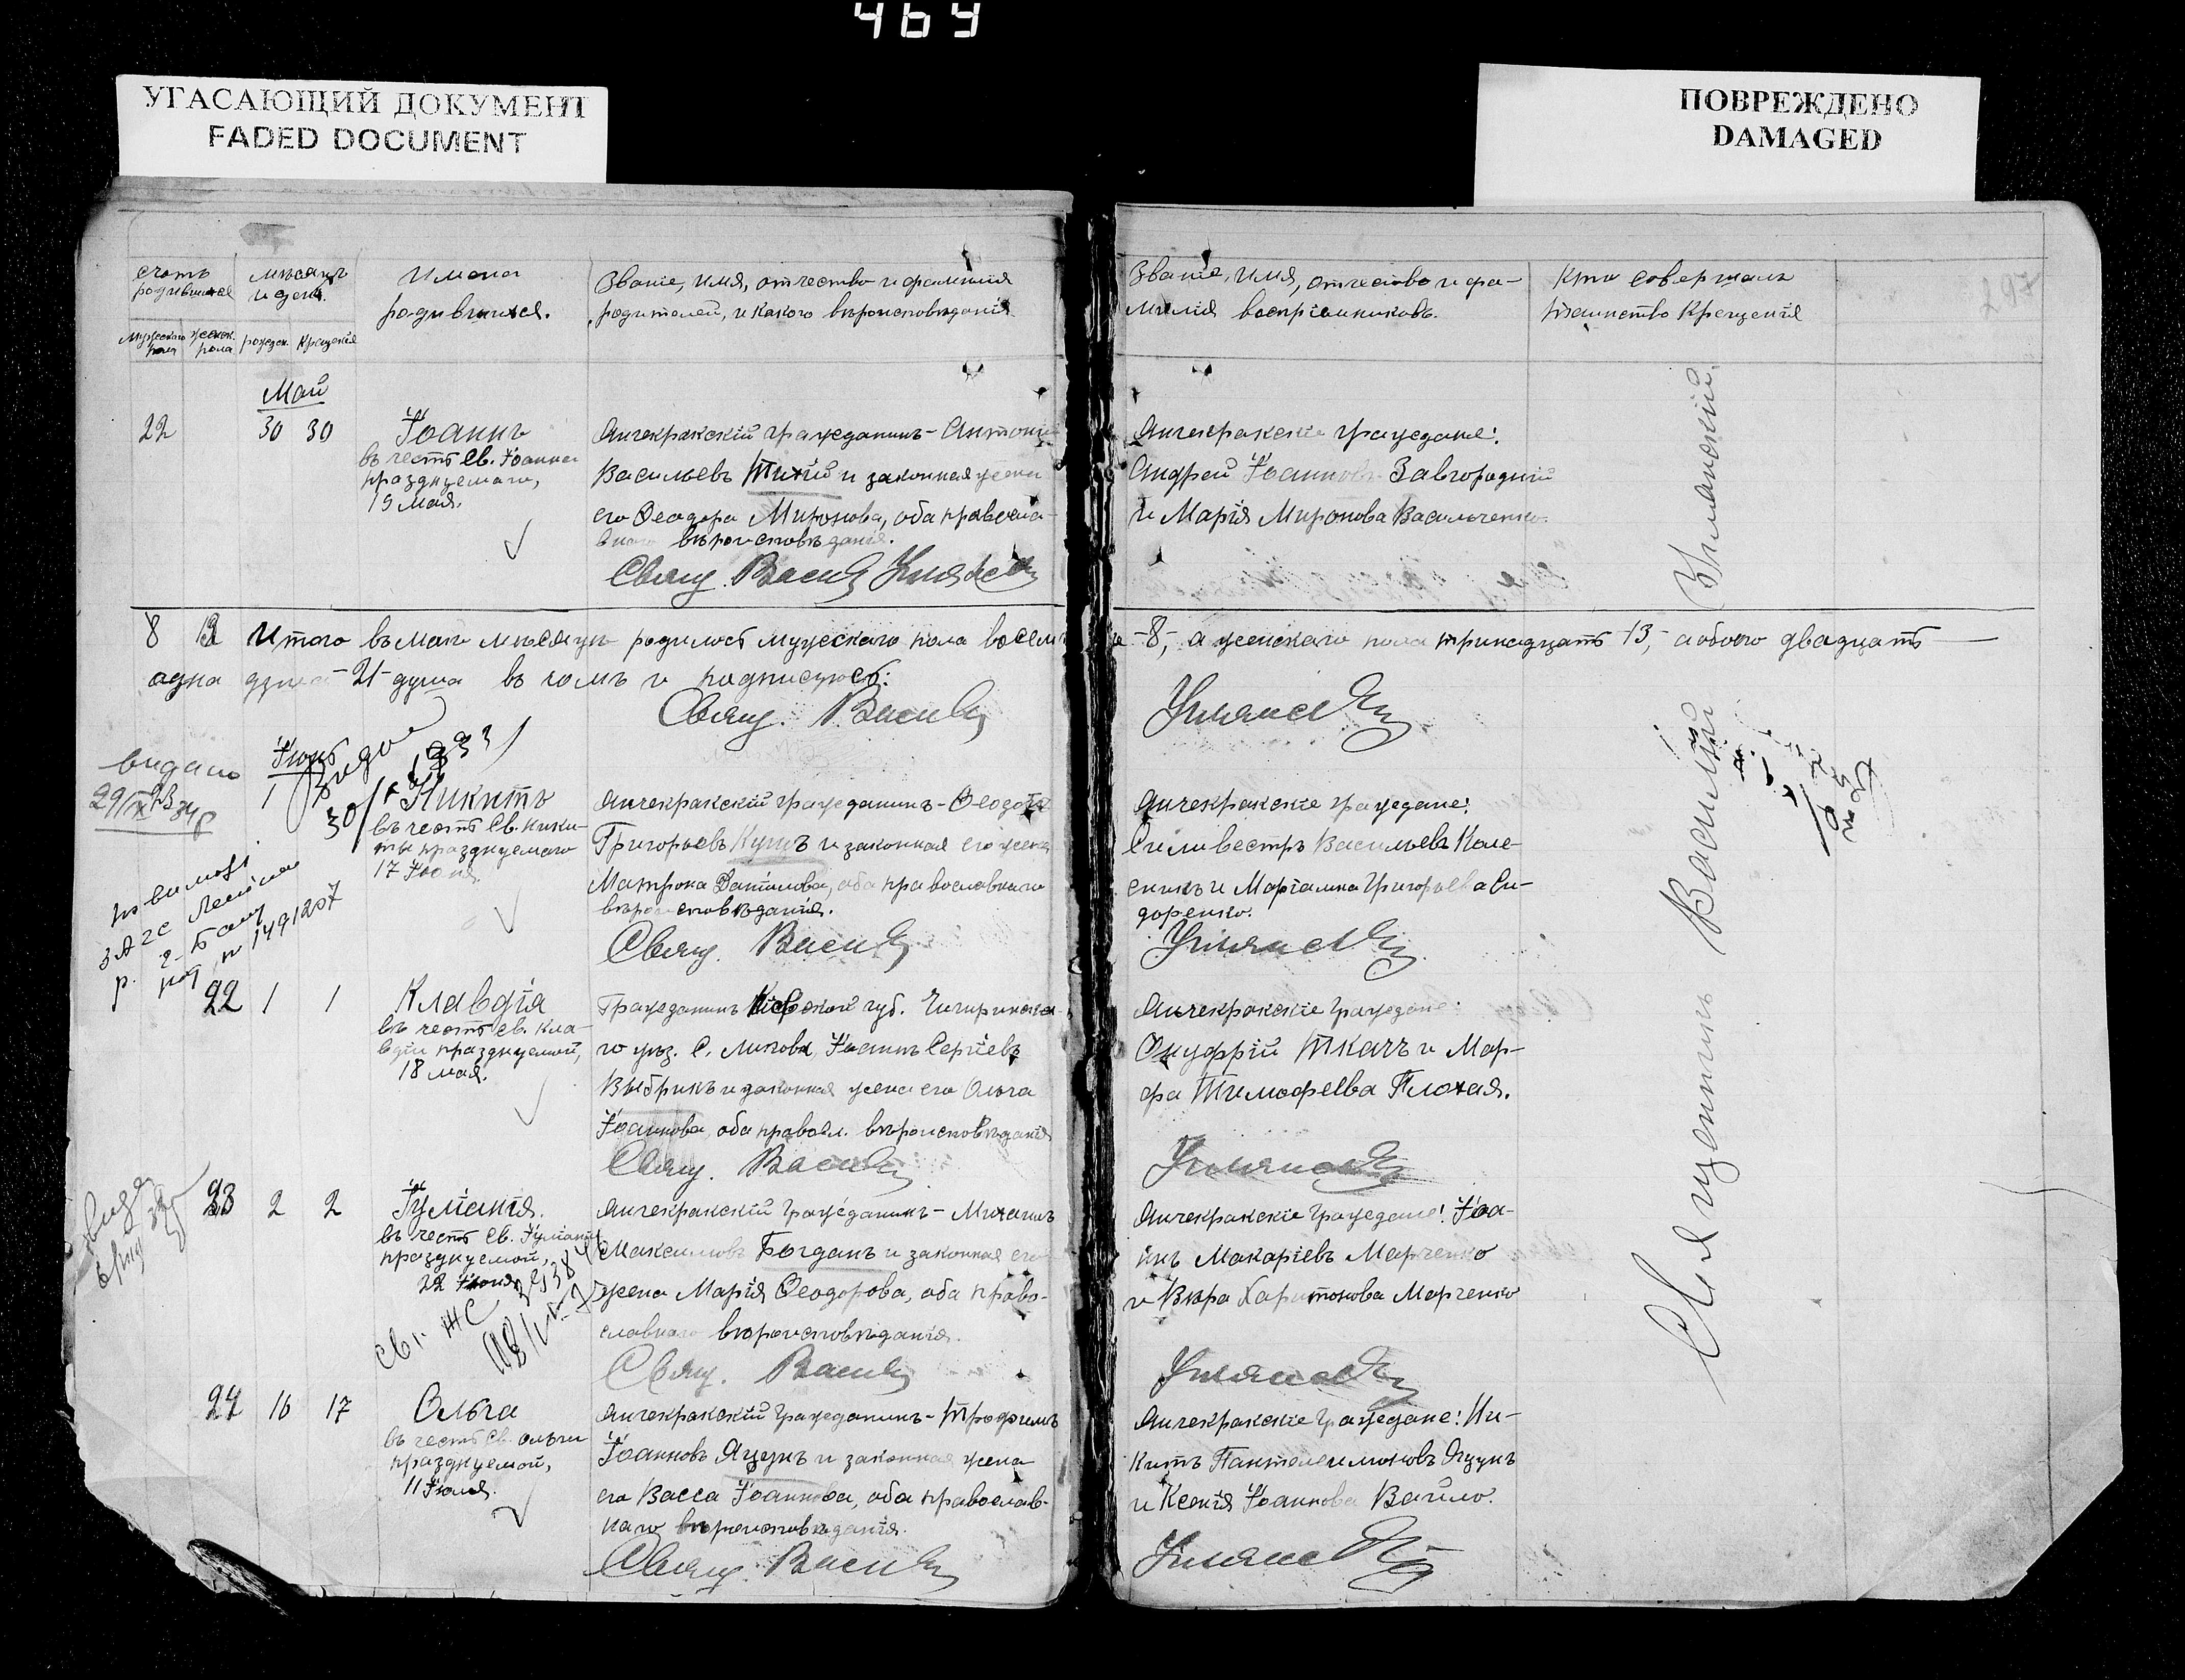 469
УГАСАЮЩИЙ ДОКУМЕНТ
FADED DOCUMENT
ПОВРЕЖДЕНО
DAMAGED
счетъ родившихся
мѣсяцъ и день.
Имена родившихся.
Званіе, имя, отчество и фамилія
родителей, и какого вѣроисповѣданія.
Званіе, имя, отчество и фа-
милія воспріемниковъ.
Кто совершалъ
таинство Крещенія
297
Мужескаго пола
женск. пола
рожден.
Крещенія
Май
22 30 30
Іоаннъ
въ честь Св. Іоанна
празднуемаго,
19 мая.
Анчекракскій гражданинъ - Антоній
Васильевъ Тихій и законная жена
его Ѳеодора Миронова, оба правосла-
внаго вѣроисповѣданія.
Свящ. Василій Уманскій
Анчекракскіе граждане:
Андрей Іоанновъ Завгородній
и Марія Миронова Васильченко.
8 13 Итого въ маѣ мѣсяцѣ родилось мужескаго пола восемь -8,- а женскаго пола тринадцать -13,- а обоего двадцать
одна душа -21- душа въ чомъ и подписуюсь:
Свящ. Василій Уманскій
Іюнь
видано
1933
1
30/
Никитъ
въ честь Св. Ники-
ты празднуемаго
17 Іюня.
Анчекракскій гражданинъ - Ѳеодоръ
Григорьевъ Кущъ и законная его жена
Матрона Данілова, оба православнаго
вѣроисповѣданія.
Свящ. Василій Уманскій
Анчекракскіе граждане:
Силивестръ Васильевъ Коле-
сникъ и Маріамна Григорьева Си-
доренко.
р.
1491207
22 1 1
Клавдіа
въ честь Св. Кла-
вдіи празднуемой,
18 мая.
Гражданинъ Кіевской губ. Чигиринска-
го уѣз. С. Липова, Іоаннъ Сергіевъ
Выбрикъ и законная жена его Ольга
Іоаннова, оба правосл. вѣроисповѣданія
Свящ. Василій Уманскій
Анчекракскіе граждане:
Онуфрій Ткачъ и Мар-
фа Тимофеева Плохая.
23 2 2
Іуліанія.
въ честь Св. Іуліаніи
празднуемой,
22 Іюня
Анчекракскій гражданинъ - Михаилъ
Максимовъ Богданъ и законная его
жена Марія Ѳеодорова, оба право-
славнаго вѣроисповѣданія.
Свящ. Василій Уманскій
Анчекракскіе граждане: Іоа-
ннъ Макаріевъ Марченко
и Вѣра Харитонова Марченко
24 16 17
Ольга
въ честь Св. Ольги
празднуемой,
11 Іюля.
Анчекракскій гражданинъ - Трофимъ
Іоанновъ Яцунъ и законная жена
его Васса Іоаннова, оба православ-
наго вѣроисповѣданія.
Свящ. Василій Уманскій
Анчекракскіе граждане: Ни-
китъ Пантелеимоновъ Яцунъ
и Ксенія Іоаннова Вайло.
Священникъ Василій Уманскій.